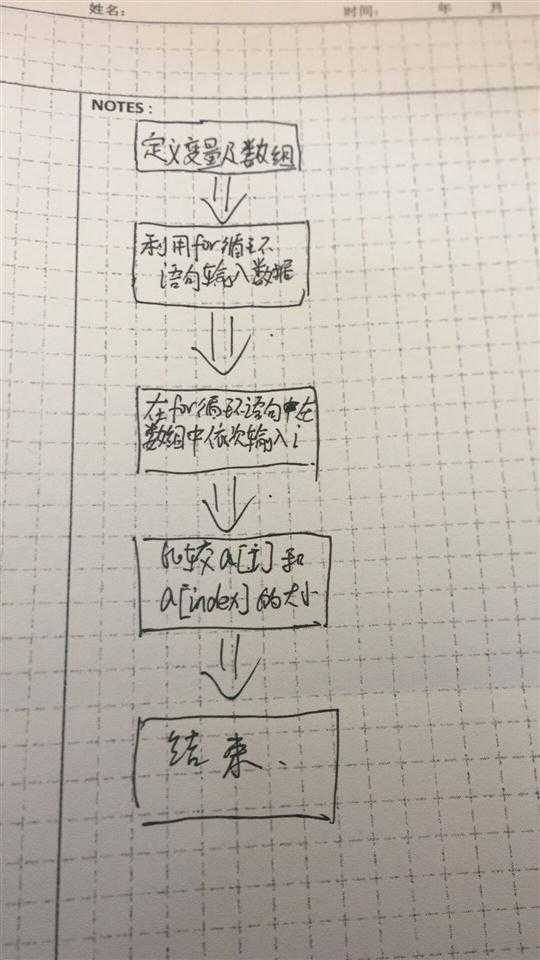 姓名：
时间： 年 月
NOTES :
定义变量及数组
利用for循环
语句输入数据
在for循环语句中在
数组中依次输入i
比较a[i]和
a[index]的大小
结束.